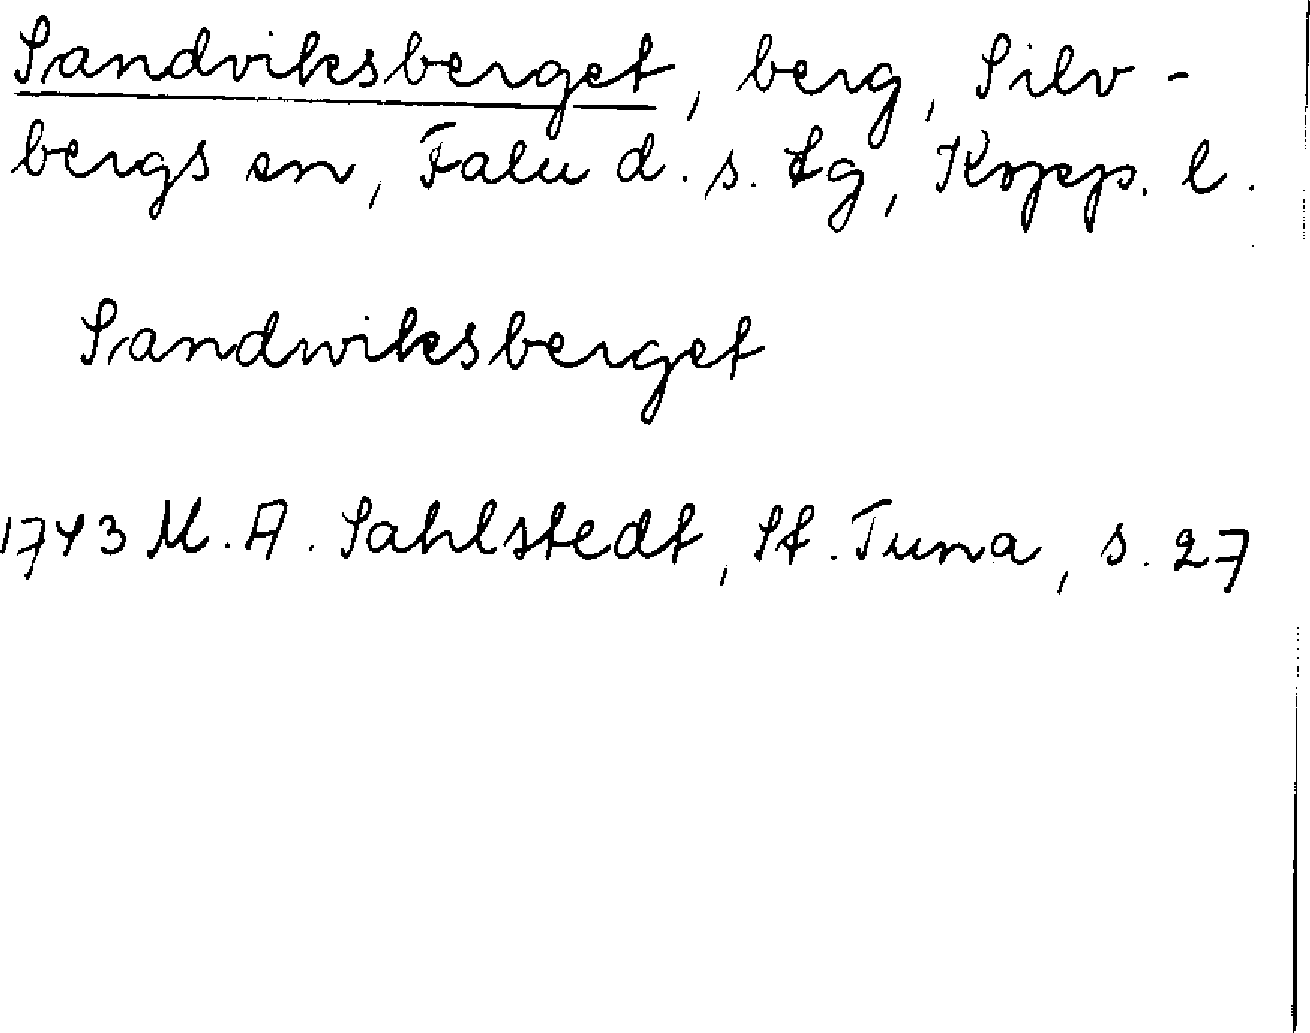 Sandviksberget, berg, Silv-
bergs sn, Falu d. s. tg, Kopp. l.
Sandwiksberget
1743 M. A. Sahlstedt, St. Tuna, s. 27